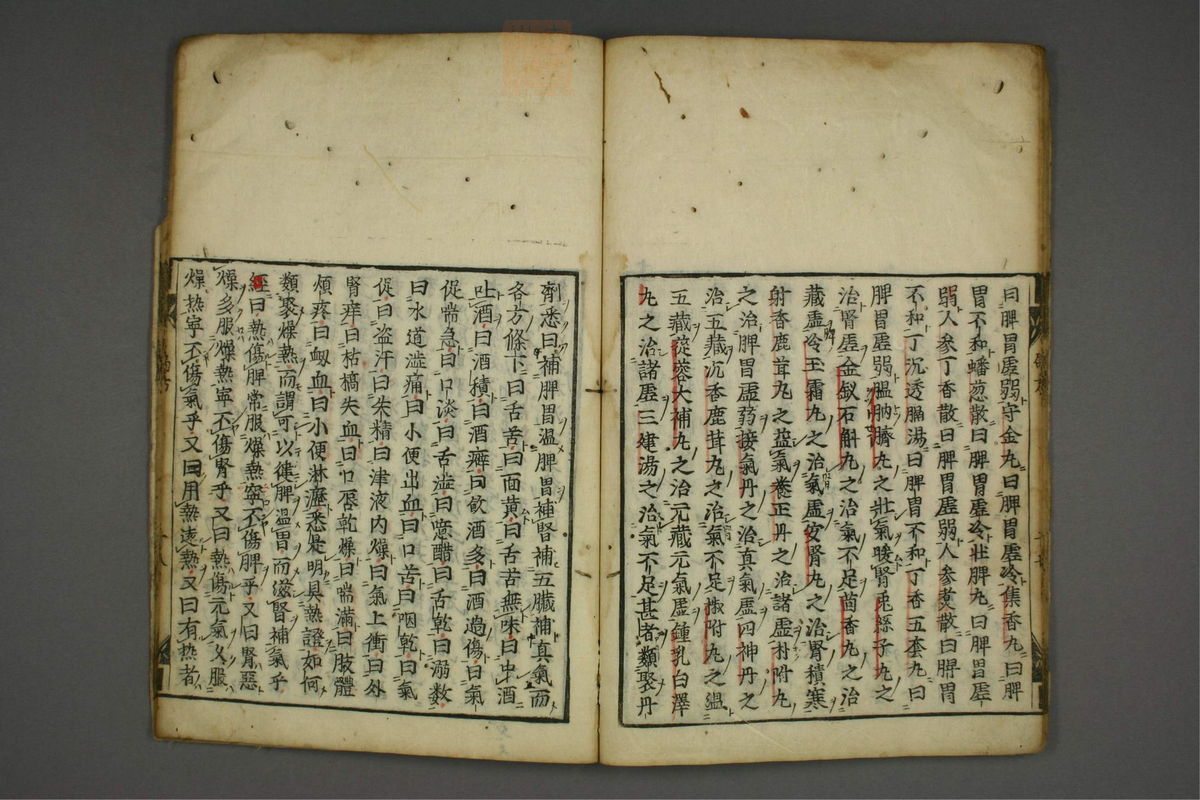 曰脾胃虛弱守金丸曰脾胃虛冷集香丸曰脾
胃不和蟠葱散曰脾胃虛冷壯脾丸曰脾胃虛
弱人參丁香散曰脾胃虛弱人參煑散曰脾胃
不和丁沉透膈湯曰脾胃不和丁香五套丸曰
脾胃虛弱腽肭臍丸之壯氣暖腎兎絲子丸之
治腎虛金釵石斛丸之治氣不足茴香丸之治
藏虛冷玉霜丸之治氣虛安腎丸之治腎積寒
射香鹿茸丸之益氣養正丹之治諸虛朴附丸
之治脾胃虛弱接氣丹之治真氣虛四神丹之
治五藏沉香鹿茸丸之治氣不足椒附丸之温
五藏蓯蓉大補丸之治元藏元氣虛鍾乳白澤
丸之治諸虛三建湯之治氣不足甚者類聚丹
劑悉曰補脾胃温脾胃補腎補五臓補真氣而
各方條下曰舌苦曰面黄曰舌苦無味曰中酒
吐酒曰酒積曰酒癖曰飲酒多曰酒過傷曰氣
促喘急曰口淡曰舌澁曰噫醋曰舌乾曰溺数
曰水道澁痛曰小便出血曰口苦曰咽乾曰氣
促曰盗汗曰失精曰津液内燥曰氣上衝曰外
腎痒曰枯槁失血曰口唇乾燥曰喘滿曰肢體
煩疼曰衂血曰小便淋瀝悉是明具熱證如何
類聚燥熱而謂可以徤脾温胃而滋腎補氣乎
經曰熱傷脾常服燥熱寧不傷脾乎又曰腎惡
燥多服燥熱寧不傷腎乎又曰熱傷元氣乆服
燥熱寧不傷氣乎又曰用熱遠熱又曰有热者